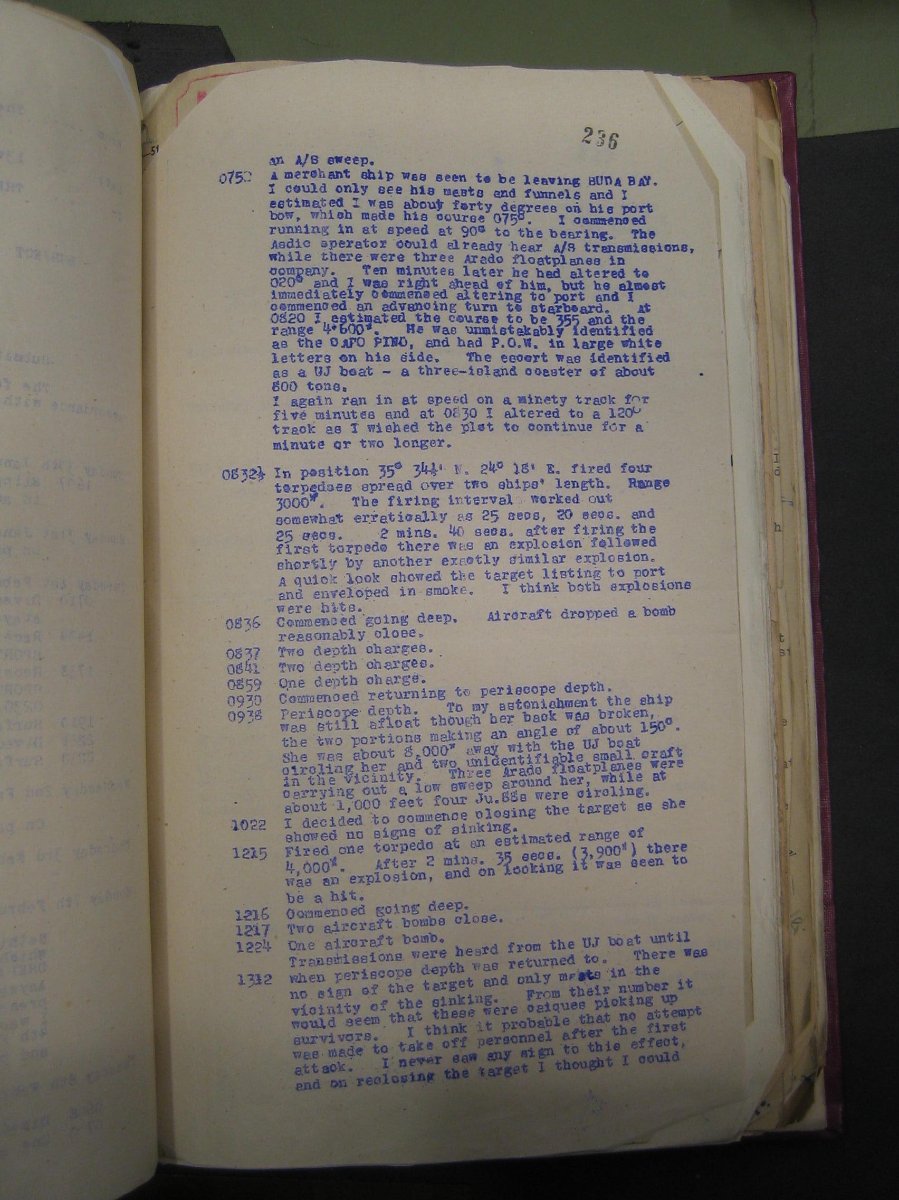 236
an A/S sweep.
0750 A merchant ship was seen to be leaving SUDA BAY.
I could only see his masts and funnels and I
estimated I was about forty degrees on his port
bow, which made his course 075°. I commenced
running in at speed at 90° to the bearing. The
Asdic operator could already hear A/S transmissions,
while there were three Arado floatplanes in
company. Ten minutes later he had altered to
020° and I was right ahead of him, but he almost
immediately commenced altering to port and I
commenced an advancing turn to starboard. At
0820 I estimated the course to be 355 and the
range 4,600ˣ. He was unmistakably identified
as the CAPO PINO, and had P.O.W. in large white
letters on his side. The escort was identified
as a UJ boat - a three-island coaster of about
800 tons.
I again ran in at speed on a ninety track for
five minutes and at 0830 I altered to a 120°
track as I wished the plot to continue for a
minute or two longer.
0832½ In position 35° 34½' N. 24° 18' E. fired four
torpedoes spread over two ships' length. Range
3000ˣ. The firing interval worked out
somewhat erratically as 25 secs, 20 secs. and
25 secs. 2 mins. 40 secs. after firing the
first torpedo there was an explosion followed
shortly by another exactly similar explosion.
A quick look showed the target listing to port
and enveloped in smoke. I think both explosions
were hits.
0836 Commenced going deep. Aircraft dropped a bomb
reasonably close.
0837 Two depth charges.
0841 Two depth charges.
0859 One depth charge.
0930 Commenced returning to periscope depth.
0938 Periscope depth. To my astonishment the ship
was still afloat though her back was broken,
the two portions making an angle of about 150°.
She was about 8,000ˣ away with the UJ boat
circling her and two unidentifiable small craft
in the vicinity. Three Arado floatplanes were
carrying out a low sweep around her, while at
about 1,000 feet four Ju.88s were circling.
1022 I decided to commence closing the target as she
showed no signs of sinking.
1215 Fired one torpedo at an estimated range of
4,000ˣ. After 2 mins. 35 secs. (3,900ˣ) there
was an explosion, and on looking it was seen to
be a hit.
1216 Commenced going deep.
1217 Two aircraft bombs close.
1224 One aircraft bomb.
Transmissions were heard from the UJ boat until
1312 when periscope depth was returned to. There was
no sign of the target and only masts in the
vicinity of the sinking. From their number it
would seem that these were caiques picking up
survivors. I think it probable that no attempt
was made to take off personnel after the first
attack. I never saw any sign to this effect,
and on reclosing the target I thought I could